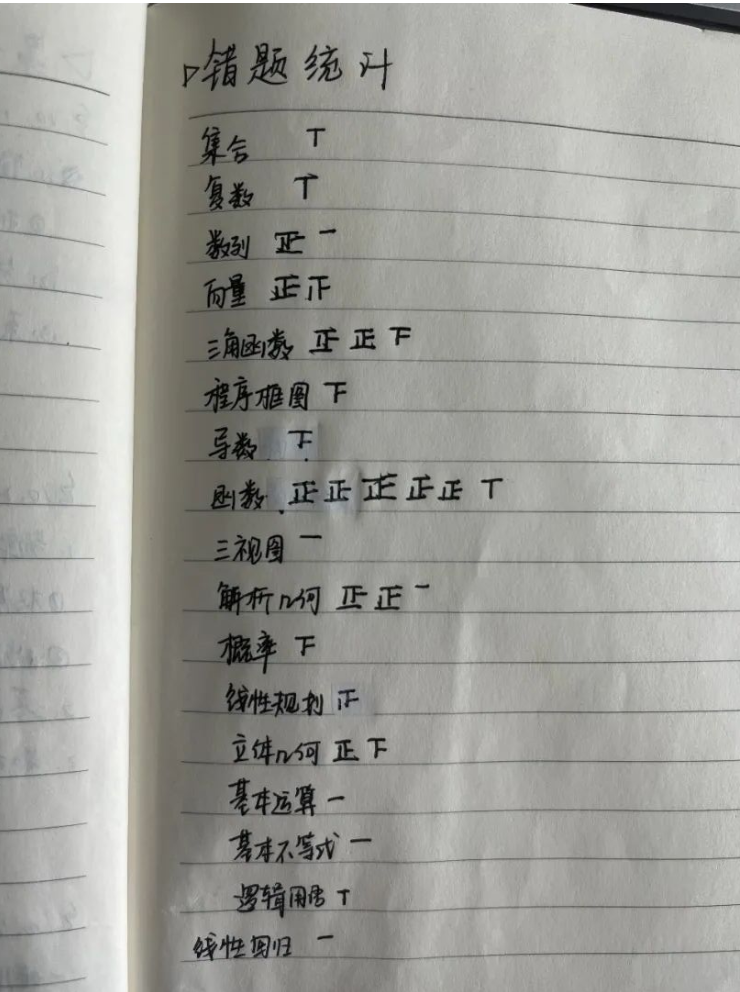 ▷错题统计
集合 丅
复数 丅
数列 正一
向量 正𤴓
三角函数 正正下
程序框图 下
导数 下
函数 正正正正正丅
三视图 一
解析几何 正正一
概率 下
线性规划 𤴓
立体几何 正下
基本运算 一
基本不等式 一
逻辑用语 丅
线性回归 一